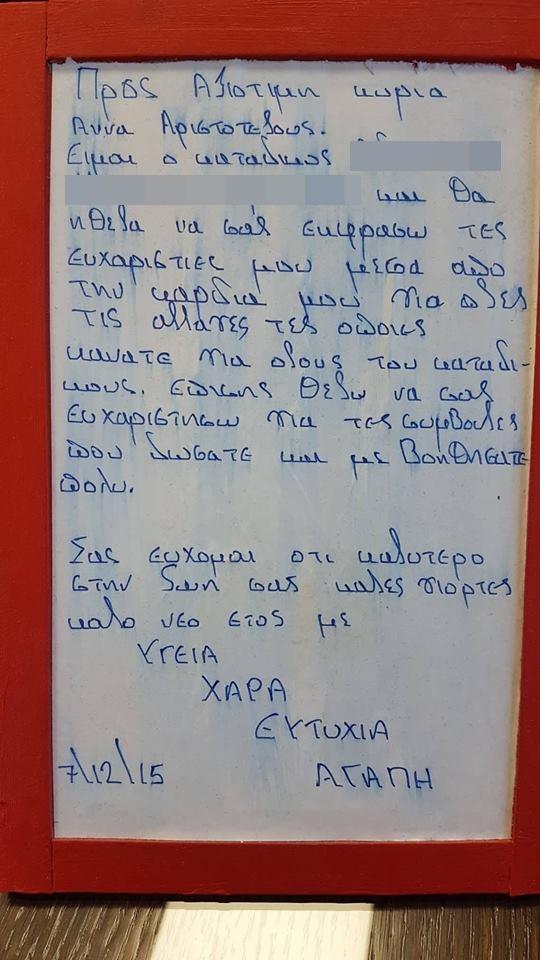 Προς Αξιοτιμη κυρια
Αννα Αριστοτελους.
Ειμαι ο καταδικος
και θα
ηθελα να σας εκφρασω τες
ευχαριστιες μου μεσα απο
την καρδια μου για ολες
τις αλλαγες τες οποιες
κανατε για ολους του καταδι-
κους. επισης θελω να σας
ευχαριστησω για τες συμβουλες
που δωσατε και με βοηθησατε
πολυ.
Σας ευχομαι οτι καλυτερο
στην ζωη σας καλες γιορτες
καλο νεο ετος με
ΥΓΕΙΑ
ΧΑΡΑ
ΕΥΤΥΧΙΑ
7/12/15 ΑΓΑΠΗ